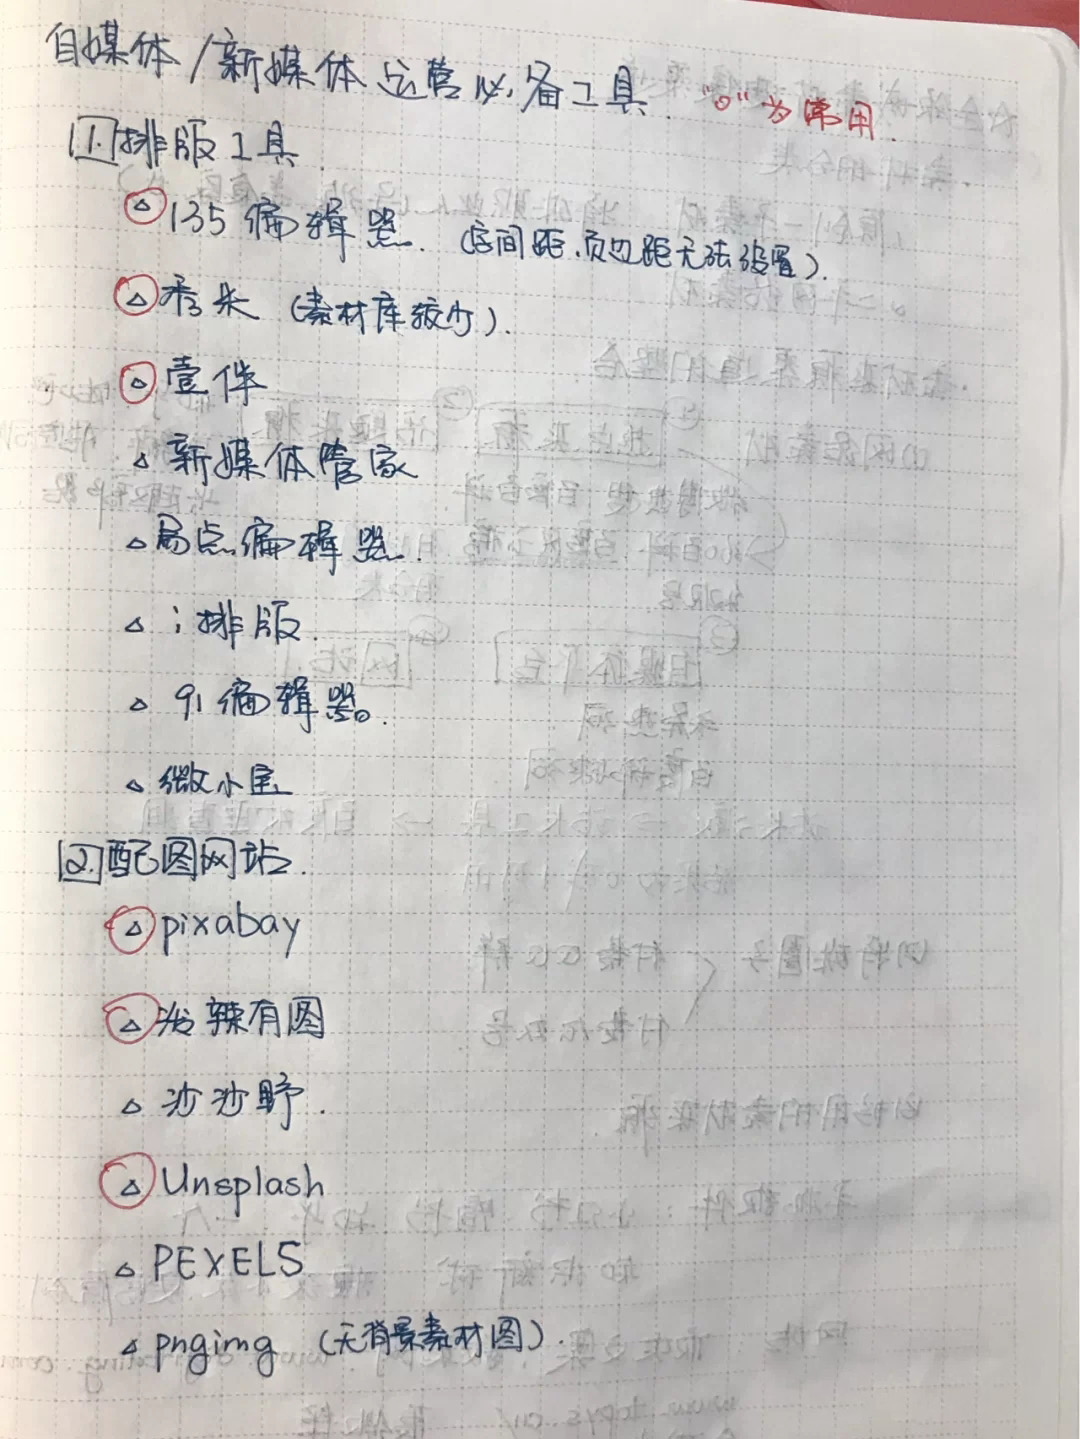 自媒体/新媒体运营必备工具. "o"为常用.
1.排版工具
△135编辑器. (字间距,页边距无法设置).
△秀米 (素材库较少).
△壹伴
△新媒体管家
△易点编辑器.
△i排版.
△91编辑器.
△微小宝
2.配图网站.
△pixabay
△泼辣有图
△沙沙野.
△Unsplash
△PEXELS
△pngimg (无背景素材图).